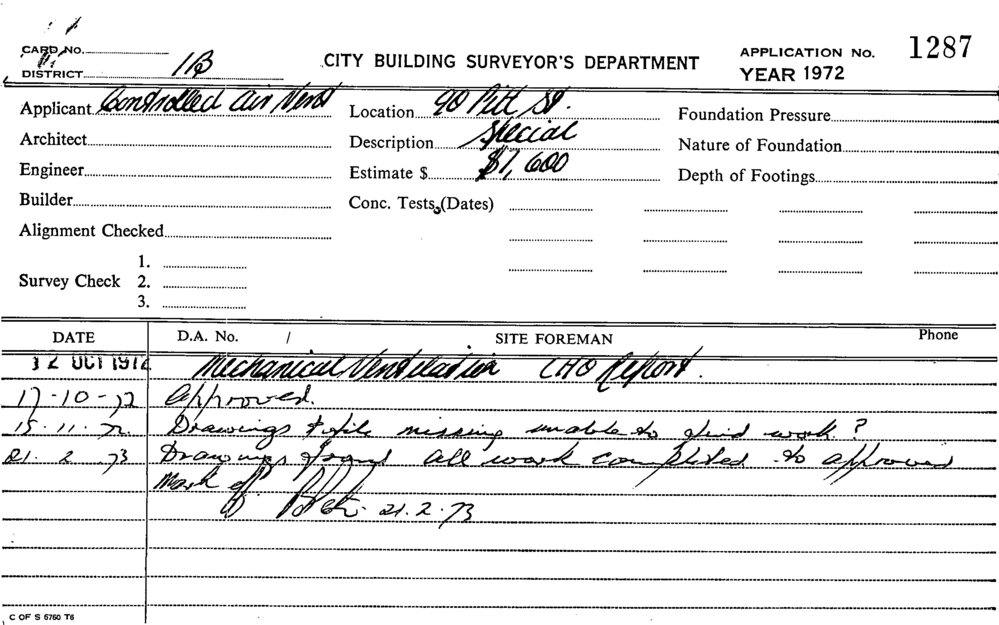 CARD NO.
DISTRICT 1B
CITY BUILDING SURVEYOR'S DEPARTMENT
APPLICATION No. 1287
YEAR 1972
Applicant Controlled Air Vent
Location 90 Pitt St.
Foundation Pressure
Architect
Description Special
Nature of Foundation
Engineer
Estimate $ $1,600
Depth of Footings
Builder
Conc. Tests (Dates)
Alignment Checked
Survey Check 1.
2.
3.
DATE D.A. No. / SITE FOREMAN Phone
12 OCT 1972 Mechanical Ventilation CHO Report.
17-10-72 Approved.
15.11.72. Drawings & file missing unable to find work?
21.2.73 Drawings found all work completed to approved
Mark off. 21.2.73
C OF S 6760 T6